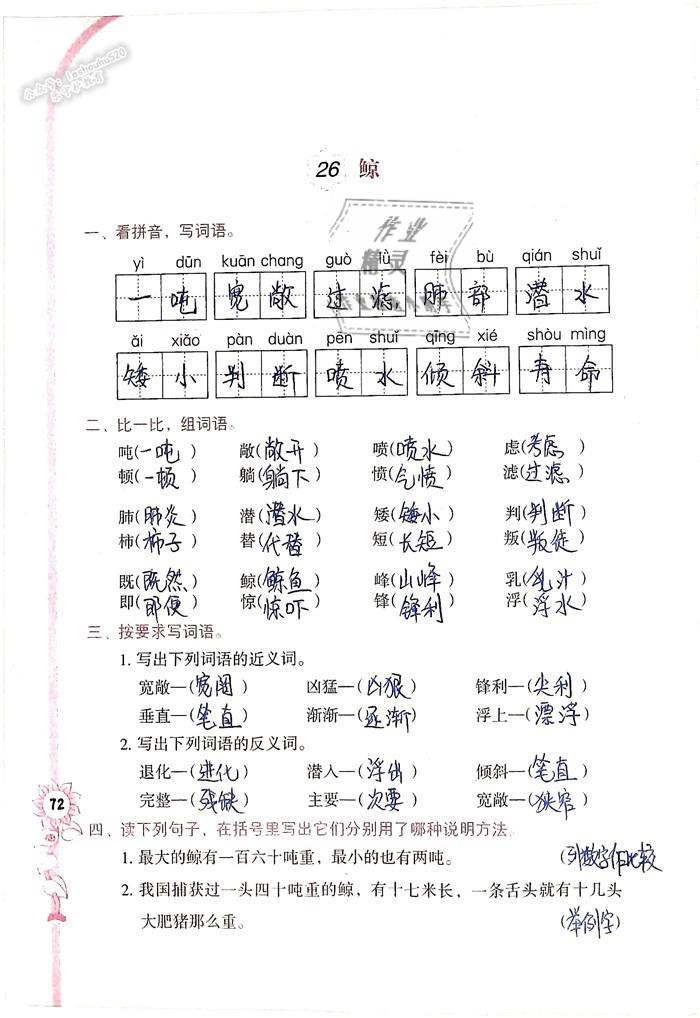 公众号:leshouhu520
乐守护教育
26 鲸
作业
精灵
一、看拼音，写词语。
yì dūn kuān chang guò lǜ fèi bù qián shuǐ
一吨 宽敞 过滤 肺部 潜水
ǎi xiǎo pàn duàn pēn shuǐ qīng xié shòu mìng
矮小 判断 喷水 倾斜 寿命
二、比一比，组词语。
吨(一吨) 敞(敞开) 喷(喷水) 虑(考虑)
顿(一顿) 躺(躺下) 愤(气愤) 滤(过滤)
肺(肺炎) 潜(潜水) 矮(矮小) 判(判断)
柿(柿子) 替(代替) 短(长短) 叛(叛徒)
既(既然) 鲸(鲸鱼) 峰(山峰) 乳(乳汁)
即(即便) 惊(惊吓) 锋(锋利) 浮(浮水)
三、按要求写词语。
1. 写出下列词语的近义词。
宽敞—(宽阔) 凶猛—(凶狠) 锋利—(尖利)
垂直—(笔直) 渐渐—(逐渐) 浮上—(漂浮)
2. 写出下列词语的反义词。
退化—(进化) 潜入—(浮出) 倾斜—(笔直)
完整—(残缺) 主要—(次要) 宽敞—(狭窄)
72
四、读下列句子，在括号里写出它们分别用了哪种说明方法。
1. 最大的鲸有一百六十吨重，最小的也有两吨。 (列数字作比较)
2. 我国捕获过一头四十吨重的鲸，有十七米长，一条舌头就有十几头
大肥猪那么重。 (举例字)